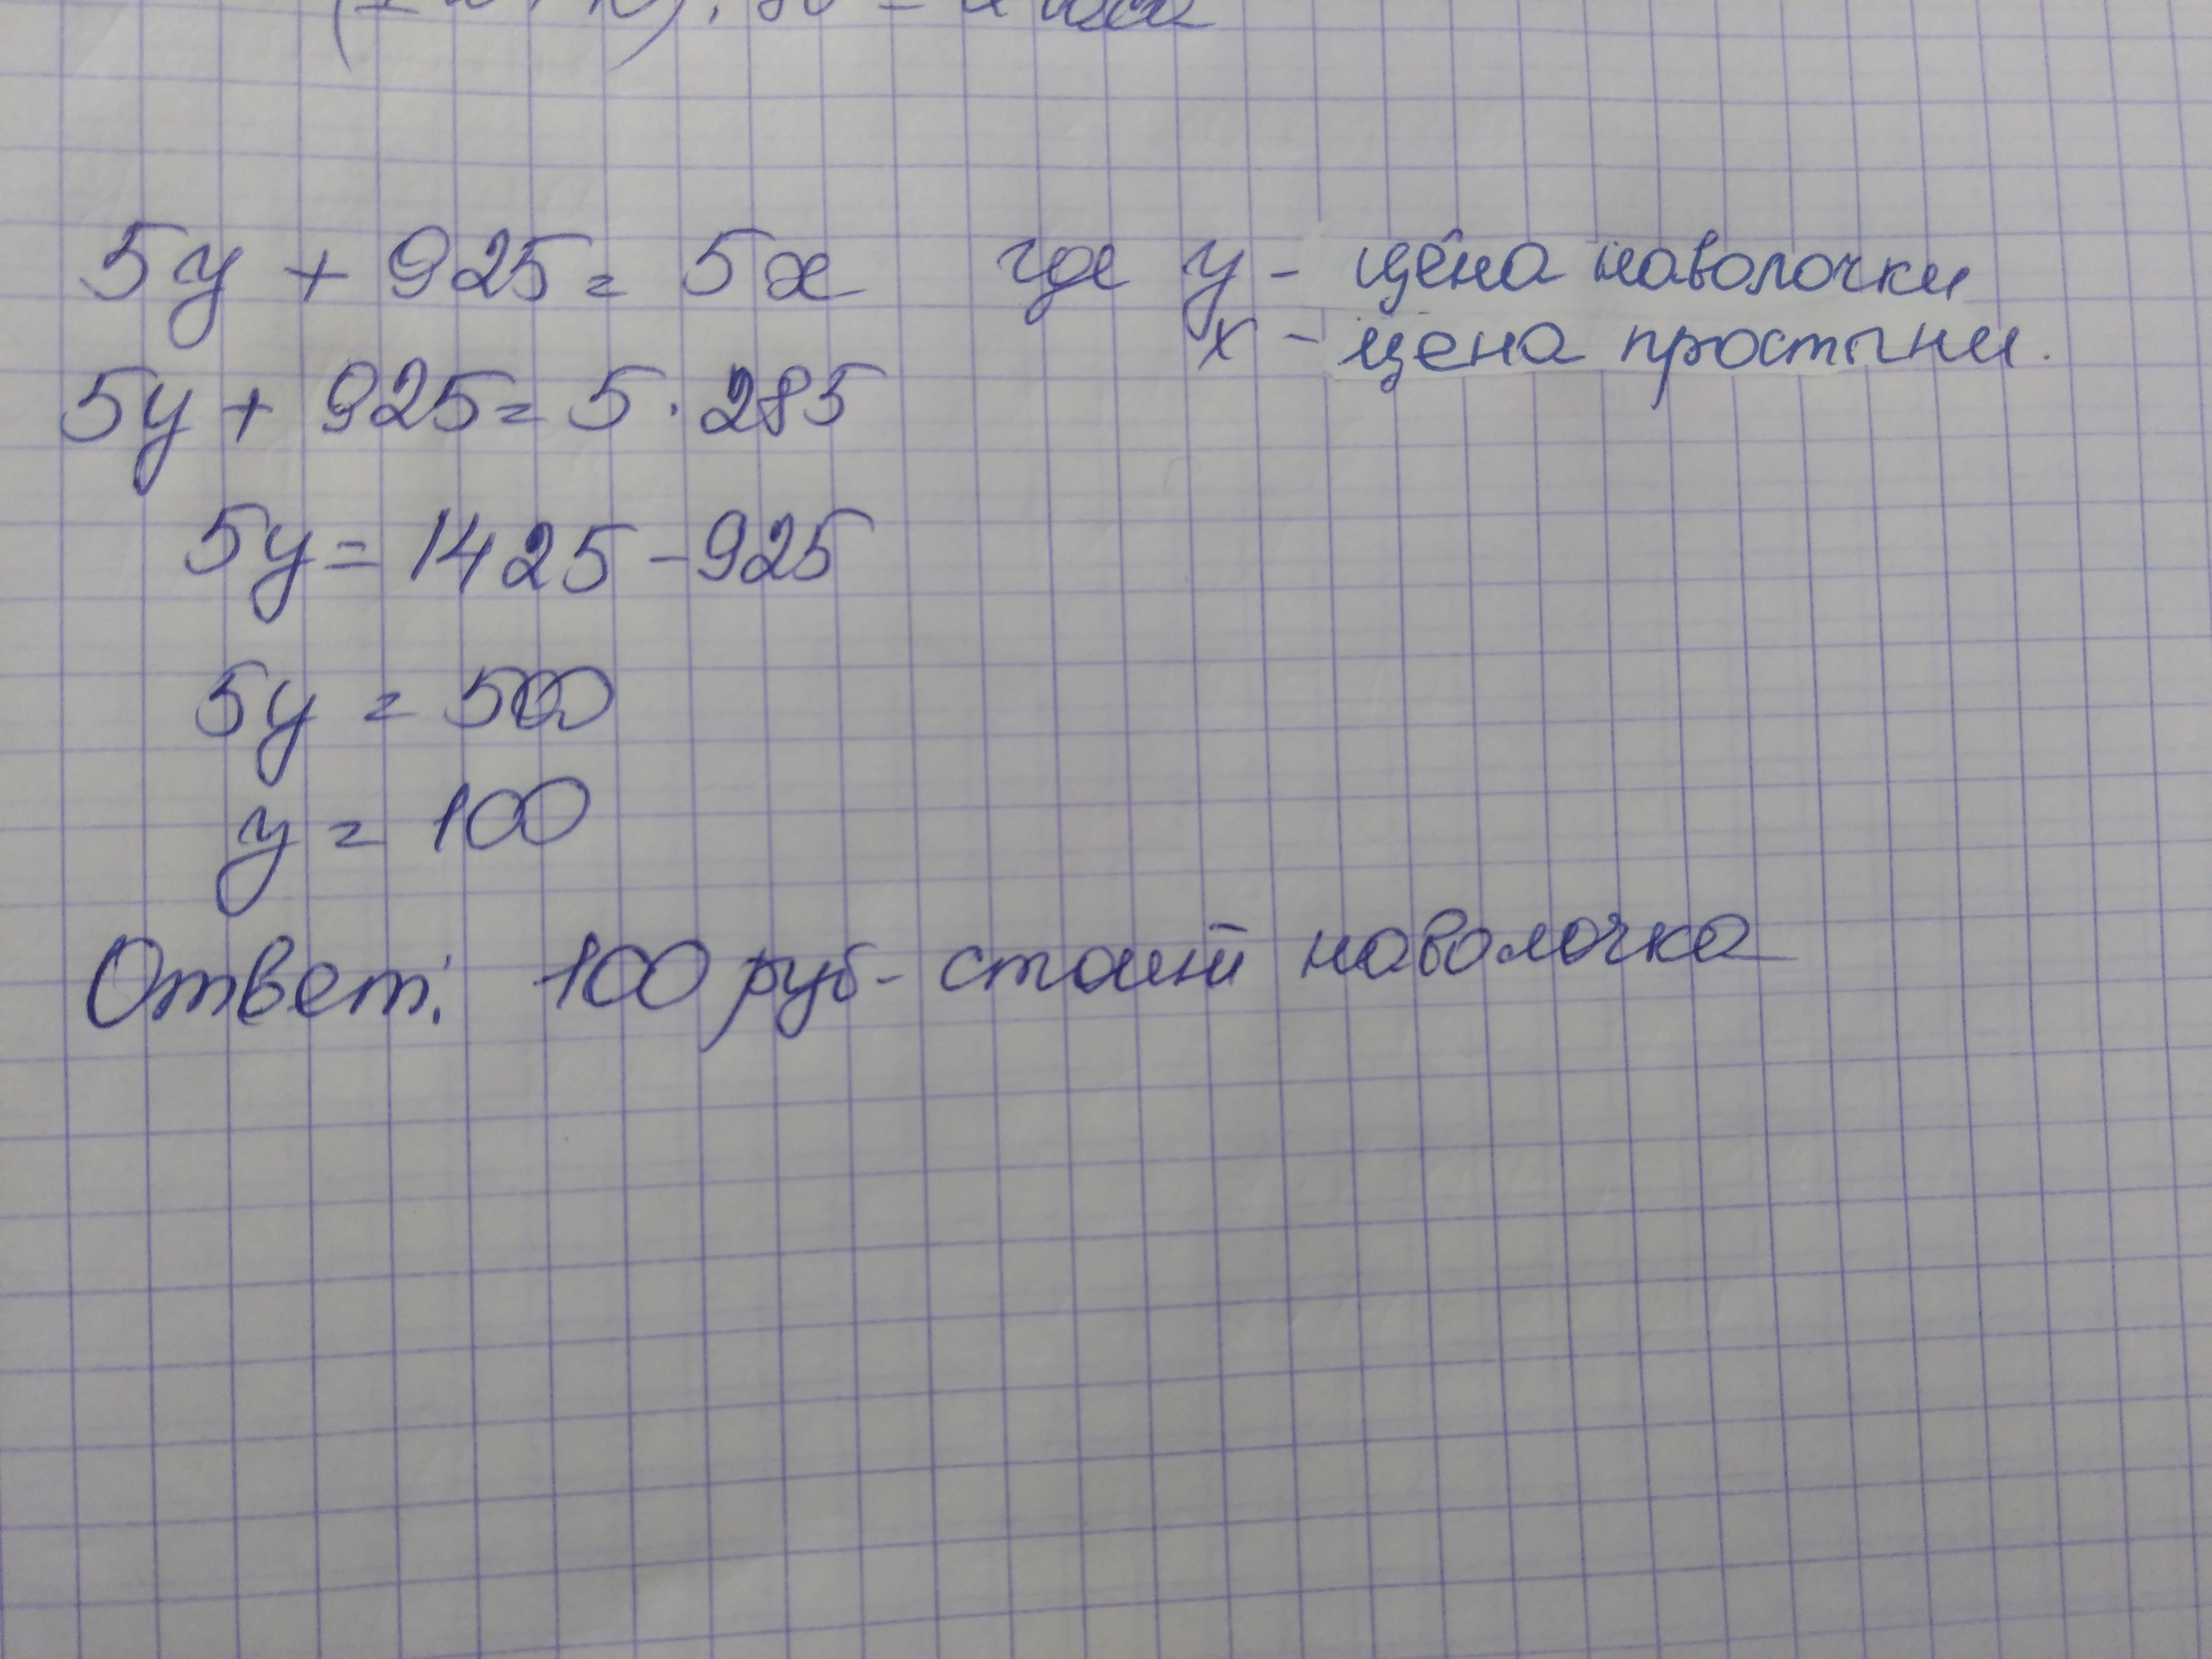 5y + 925 = 5x где y - цена наволочки
x - цена простыни.
5y + 925 = 5 · 285
5y = 1425 - 925
5y = 500
y = 100
Ответ: 100 руб - стоит наволочка